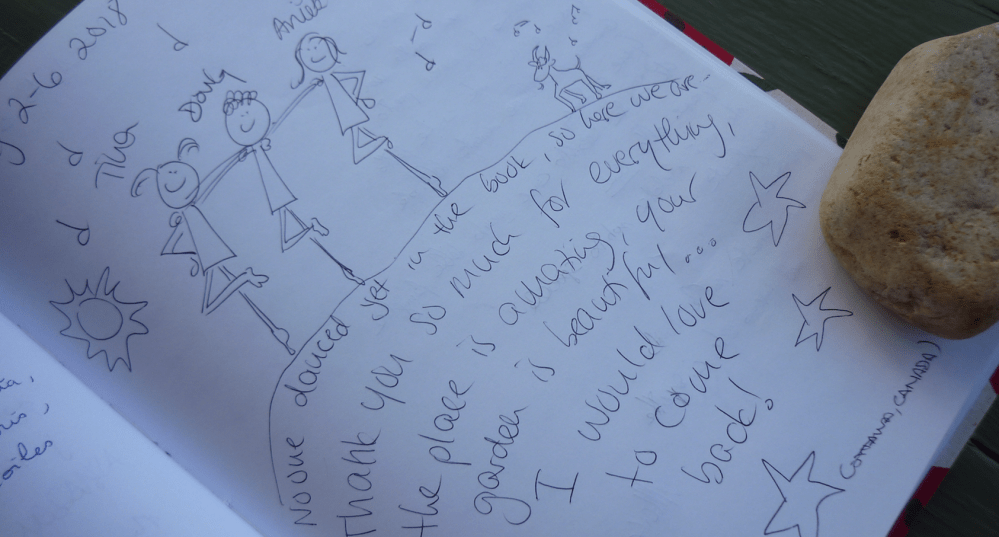 2-6 2018
Tina
Dany
No one danced yet in the book, so here we are
Thank you so much for everything,
the place is amazing, your
garden is beautiful...
I would love
to come
back!